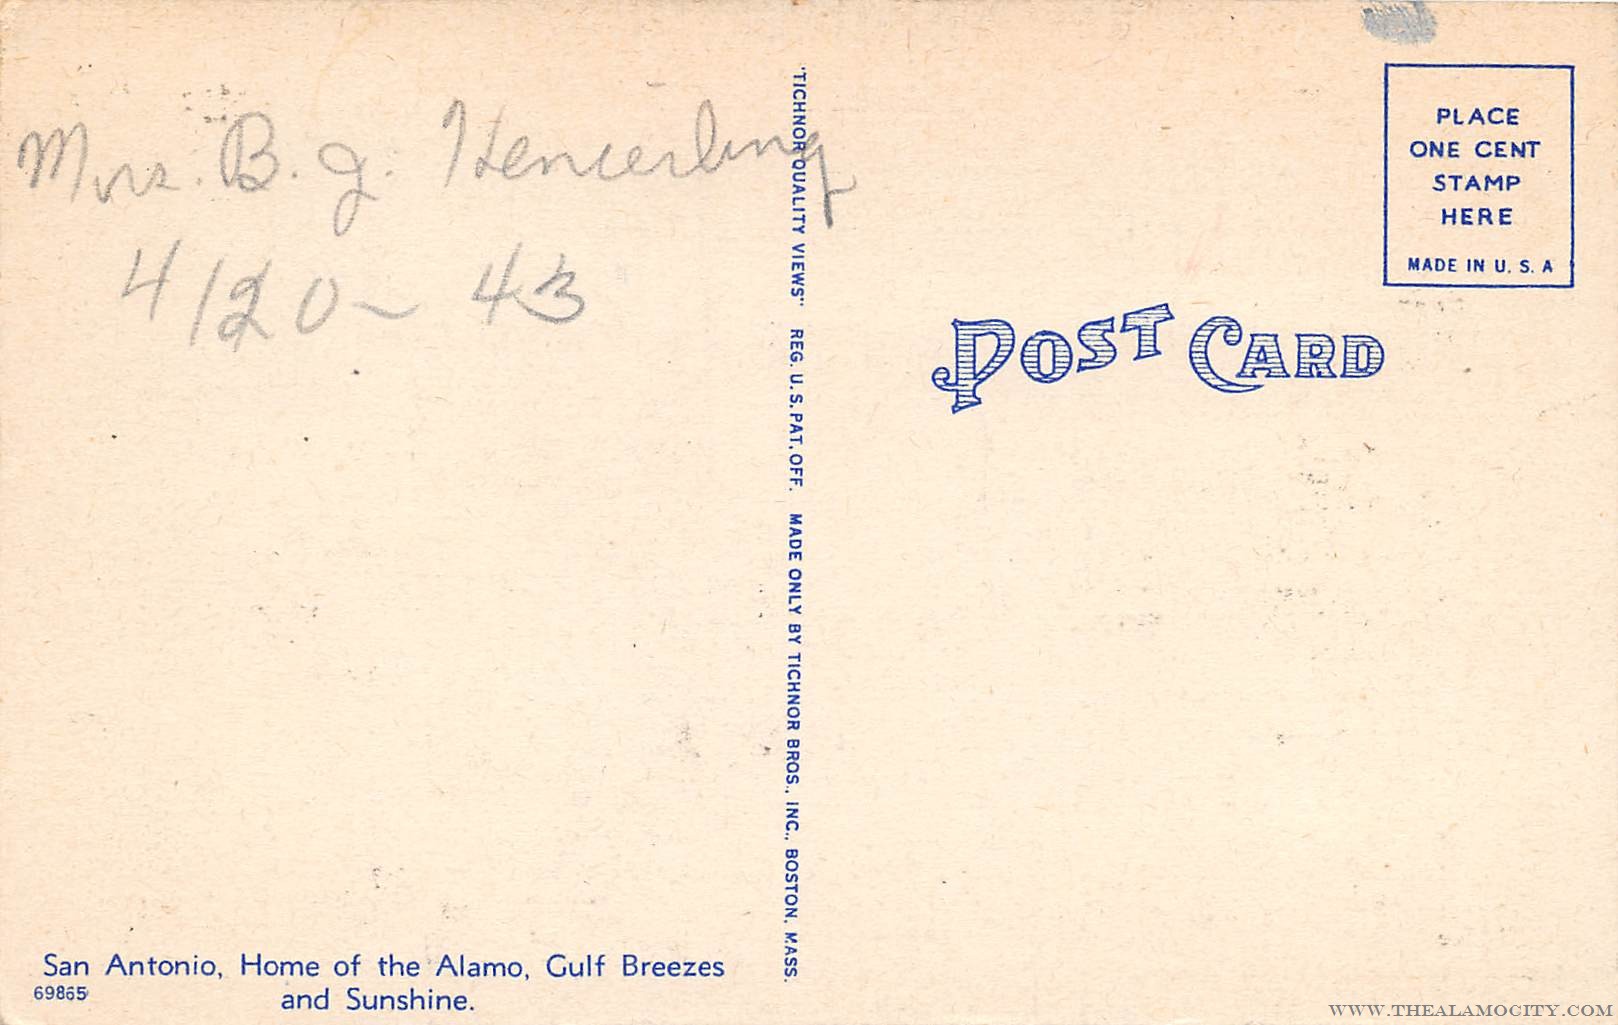 Mrs. B. J. Hencerling
4/20~ 43
"TICHNOR QUALITY VIEWS" REG. U. S. PAT. OFF. MADE ONLY BY TICHNOR BROS., INC., BOSTON, MASS.
PLACE
ONE CENT
STAMP
HERE
MADE IN U. S. A
POST CARD
San Antonio, Home of the Alamo, Gulf Breezes
69865 and Sunshine.
WWW.THEALAMOCITY.COM